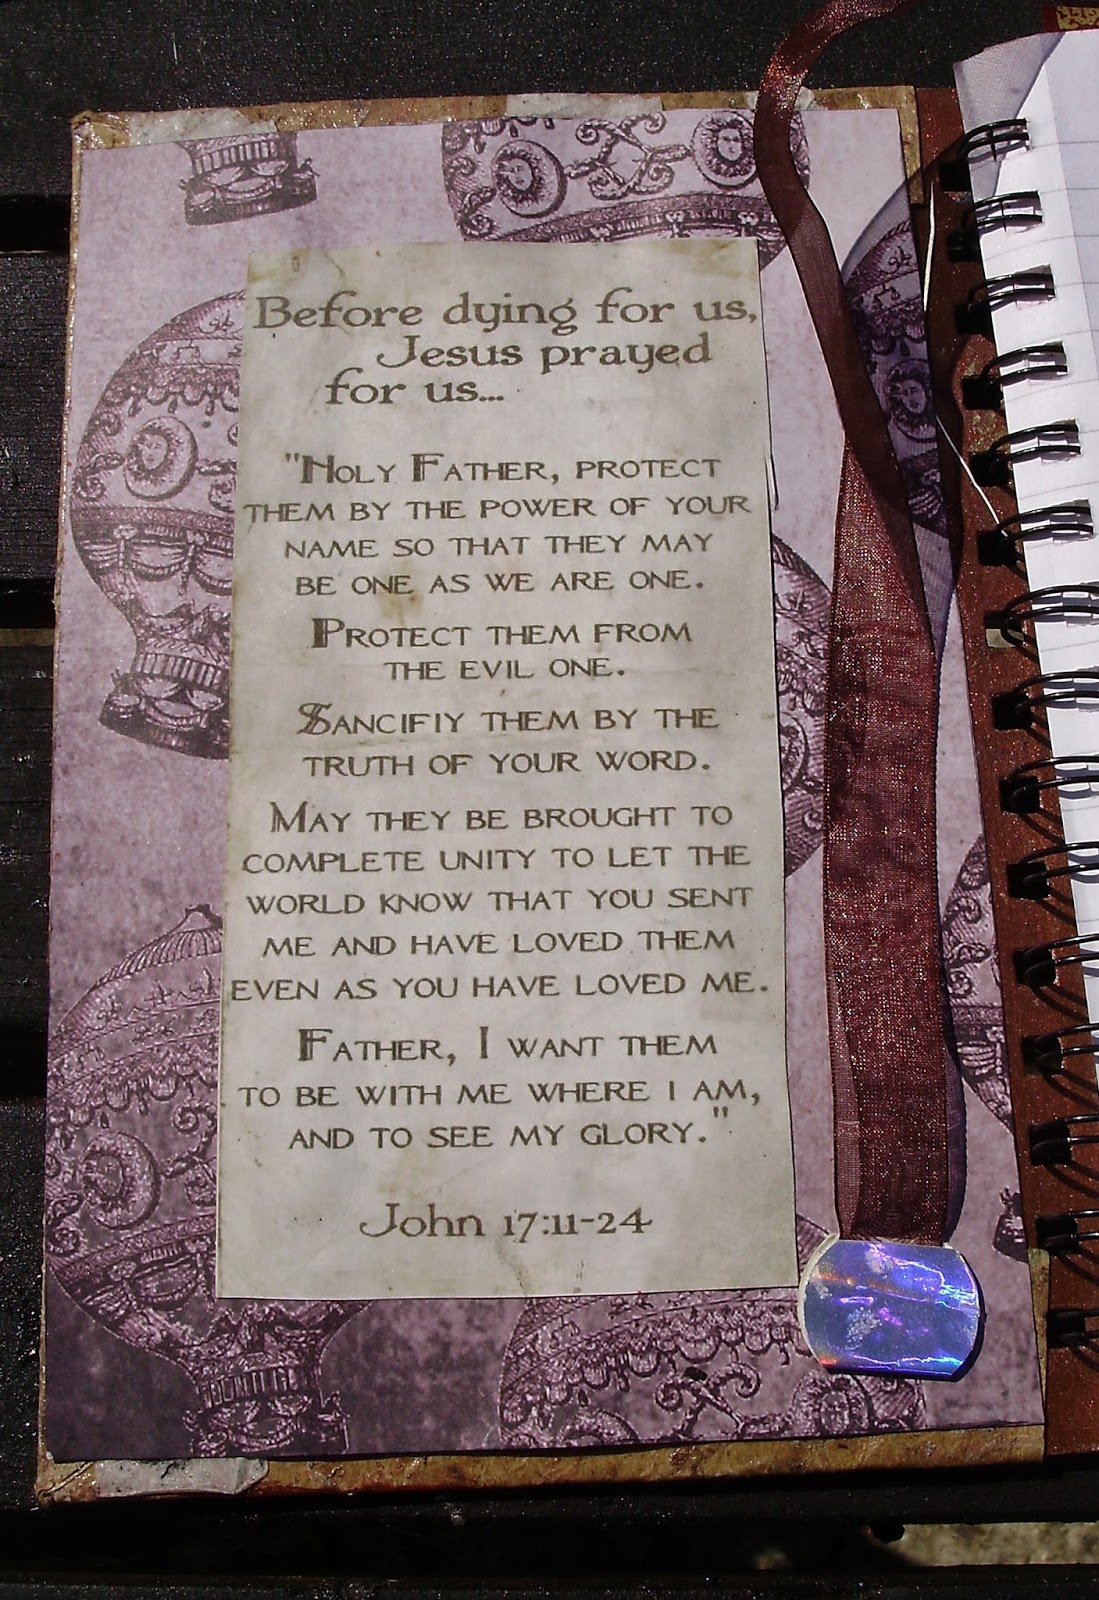 Before dying for us,
Jesus prayed
for us...
"Holy Father, protect
them by the power of your
name so that they may
be one as we are one.
Protect them from
the evil one.
Sancifiy them by the
truth of your word.
May they be brought to
complete unity to let the
world know that you sent
me and have loved them
even as you have loved me.
Father, I want them
to be with me where I am,
and to see my glory."
John 17:11-24